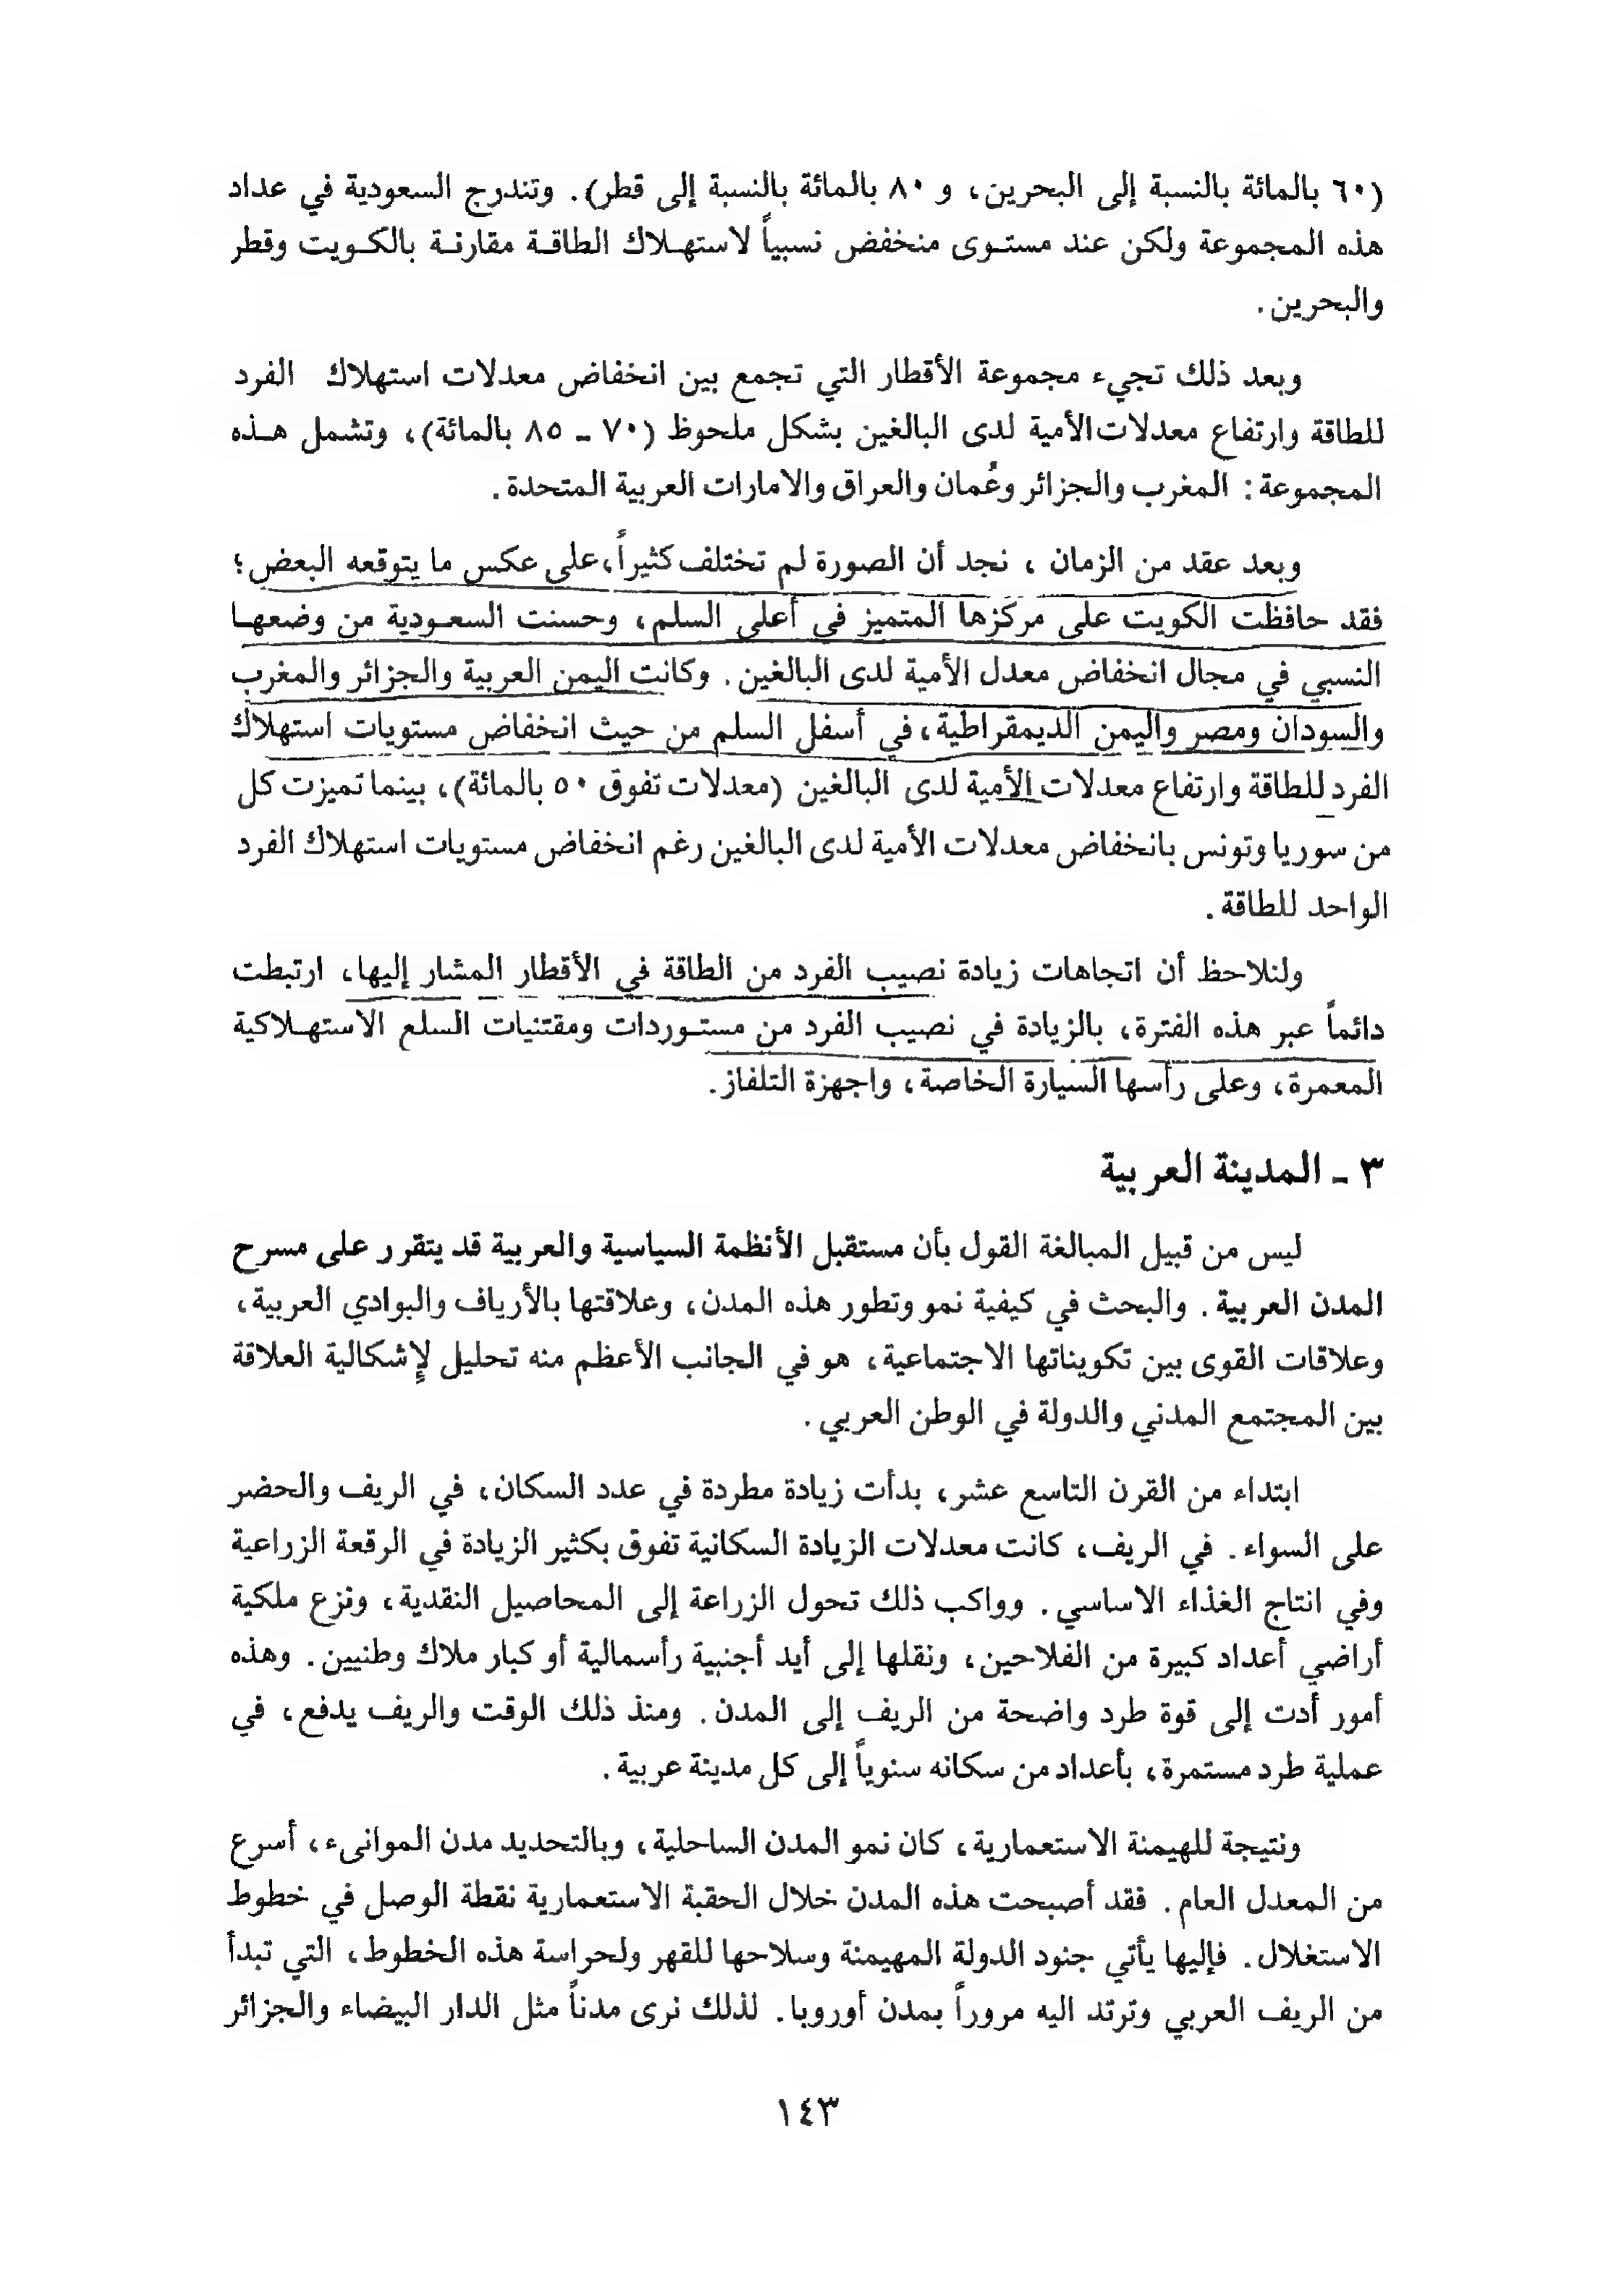 (٦٠ بالمائة بالنسبة إلى البحرين، و ٨٠ بالمائة بالنسبة إلى قطر). وتندرج السعودية في عداد
هذه المجموعة ولكن عند مستوى منخفض نسبياً لاستهلاك الطاقة مقارنة بالكويت وقطر
والبحرين.
وبعد ذلك تجيء مجموعة الأقطار التي تجمع بين انخفاض معدلات استهلاك الفرد
للطاقة وارتفاع معدلات الأمية لدى البالغين بشكل ملحوظ (٧٠ - ٨٥ بالمائة)، وتشمل هذه
المجموعة: المغرب والجزائر وعُمان والعراق والامارات العربية المتحدة.
وبعد عقد من الزمان، نجد أن الصورة لم تختلف كثيراً، على عكس ما يتوقعه البعض؛
فقد حافظت الكويت على مركزها المتميز في أعلى السلم، وحسنت السعودية من وضعها
النسبي في مجال انخفاض معدل الأمية لدى البالغين. وكانت اليمن العربية والجزائر والمغرب
والسودان ومصر واليمن الديمقراطية، في أسفل السلم من حيث انخفاض مستويات استهلاك
الفرد للطاقة وارتفاع معدلات الأمية لدى البالغين (معدلات تفوق ٥٠ بالمائة)، بينما تميزت كل
من سوريا وتونس بانخفاض معدلات الأمية لدى البالغين رغم انخفاض مستويات استهلاك الفرد
الواحد للطاقة.
ولنلاحظ أن اتجاهات زيادة نصيب الفرد من الطاقة في الأقطار المشار إليها، ارتبطت
دائماً عبر هذه الفترة، بالزيادة في نصيب الفرد من مستوردات ومقتنيات السلع الاستهلاكية
المعمرة، وعلى رأسها السيارة الخاصة، واجهزة التلفاز.
٣ - المدينة العربية
ليس من قبيل المبالغة القول بأن مستقبل الأنظمة السياسية والعربية قد يتقرر على مسرح
المدن العربية. والبحث في كيفية نمو وتطور هذه المدن، وعلاقتها بالأرياف والبوادي العربية،
وعلاقات القوى بين تكويناتها الاجتماعية، هو في الجانب الأعظم منه تحليل لإشكالية العلاقة
بين المجتمع المدني والدولة في الوطن العربي.
ابتداء من القرن التاسع عشر، بدأت زيادة مطردة في عدد السكان، في الريف والحضر
على السواء. في الريف، كانت معدلات الزيادة السكانية تفوق بكثير الزيادة في الرقعة الزراعية
وفي انتاج الغذاء الاساسي. وواكب ذلك تحول الزراعة إلى المحاصيل النقدية، ونزع ملكية
أراضي أعداد كبيرة من الفلاحين، ونقلها إلى أيد أجنبية رأسمالية أو كبار ملاك وطنيين. وهذه
أمور أدت إلى قوة طرد واضحة من الريف إلى المدن. ومنذ ذلك الوقت والريف يدفع، في
عملية طرد مستمرة، بأعداد من سكانه سنوياً إلى كل مدينة عربية.
ونتيجة للهيمنة الاستعمارية، كان نمو المدن الساحلية، وبالتحديد مدن الموانىء، أسرع
من المعدل العام. فقد أصبحت هذه المدن خلال الحقبة الاستعمارية نقطة الوصل في خطوط
الاستغلال. فإليها يأتي جنود الدولة المهيمنة وسلاحها للقهر ولحراسة هذه الخطوط، التي تبدأ
من الريف العربي وترتد اليه مروراً بمدن أوروبا. لذلك نرى مدناً مثل الدار البيضاء والجزائر
١٤٣